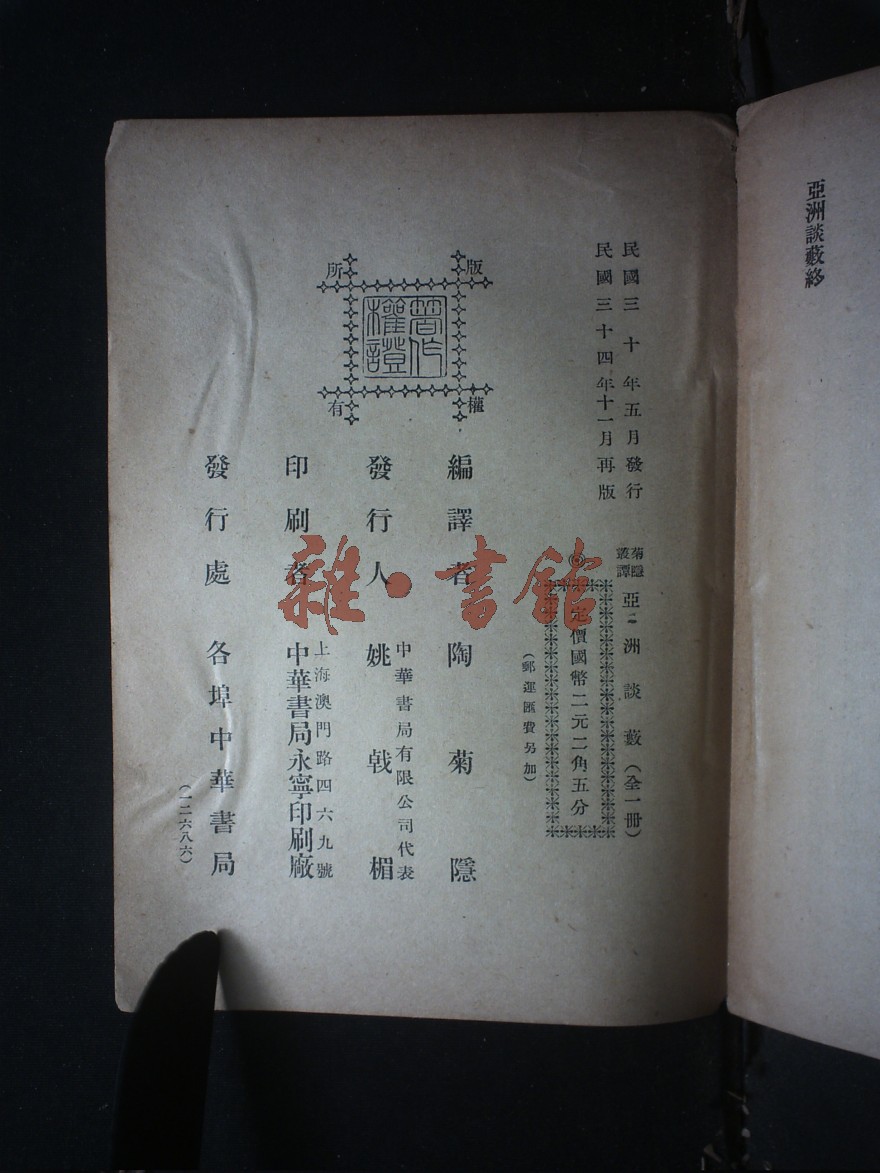 亞洲談藪終
民國三十年五月發行
民國三十四年十一月再版
菊隱叢譚
亞洲談藪(全一冊)
◎定價國幣二元二角五分
(郵運匯費另加)
版權所有
著作權證
編譯者 陶菊隱
中華書局有限公司代表
發行人 姚戟楣
上海澳門路四六九號
印刷者 中華書局永寧印刷廠
發行處 各埠中華書局
(一二六八六)
雜·書館